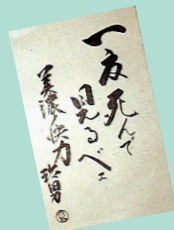 一度死んで
見るべェ
美濃 力 男